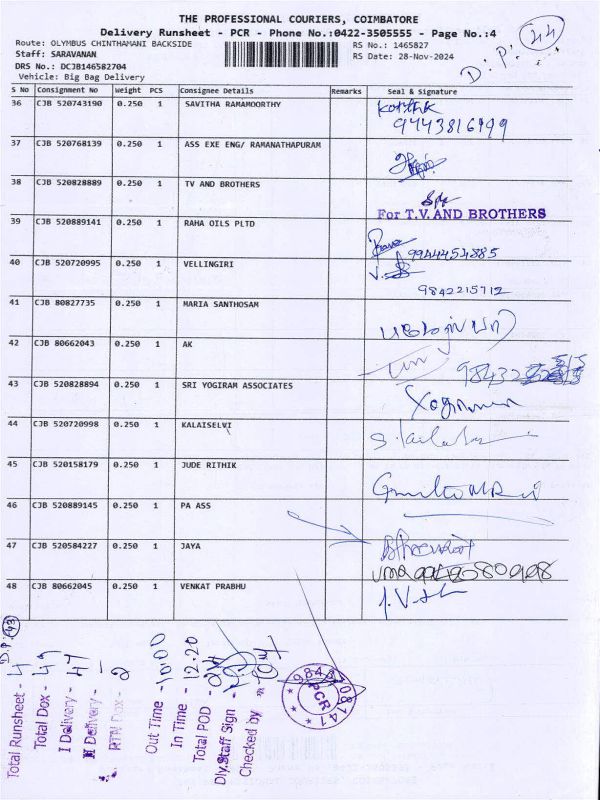 THE PROFESSIONAL COURIERS, COIMBATORE
Delivery Runsheet - PCR - Phone No.:0422-3505555 - Page No.:4
Route: OLYMBUS CHINTHAMANI BACKSIDE RS No.: 1465827
Staff: SARAVANAN RS Date: 28-Nov-2024
DRS No.: DCJB146582704
Vehicle: Big Bag Delivery
D.P: 44
S No Consignment No Weight PCS Consignee Details Remarks Seal & Signature
36 CJB 520743190 0.250 1 SAVITHA RAMAMOORTHY Karthik
37 CJB 520768139 0.250 1 ASS EXE ENG/ RAMANATHAPURAM
38 CJB 520828889 0.250 1 TV AND BROTHERS
For T.V. AND BROTHERS
39 CJB 520889141 0.250 1 RAHA OILS PLTD
9944454885
40 CJB 520720995 0.250 1 VELLINGIRI
9842215712
41 CJB 80827735 0.250 1 MARIA SANTHOSAM
42 CJB 80662043 0.250 1 AK
43 CJB 520828894 0.250 1 SRI YOGIRAM ASSOCIATES
44 CJB 520720998 0.250 1 KALAISELVI
45 CJB 520158179 0.250 1 JUDE RITHIK
46 CJB 520889145 0.250 1 PA ASS
47 CJB 520584227 0.250 1 JAYA
48 CJB 80662045 0.250 1 VENKAT PRABHU
D.P. 43
Total Runsheet - 4
Total Dox - 49
I Delivery - 47
II Delivery -
RTN Dox - 2
Out Time - 10:00
In Time - 12.20
Total POD -
Dly.Staff Sign
Checked by
PCR